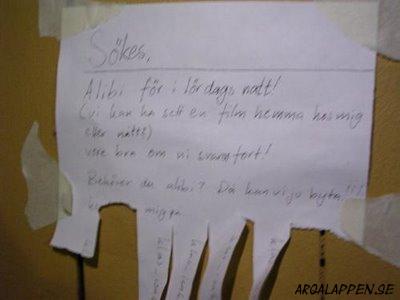 Sökes,
Alibi för i lördags natt!
(vi kan ha sett en film hemma hos mig
eller nått!)
vore bra om ni svarar fort!
Behöver du alibi? Då kan vi ju byta!!!
migga
ARGALAPPEN.SE